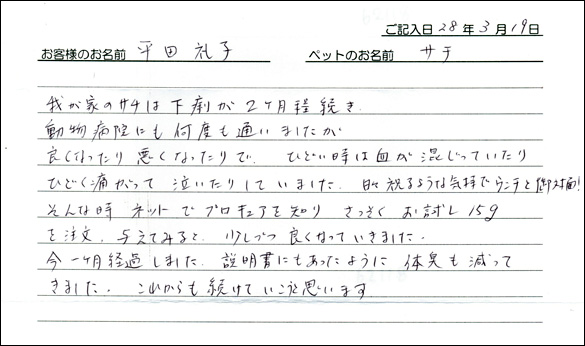 ご記入日 28年3月19日
お客様のお名前 平田 礼子 ペットのお名前 サチ
我が家のサチは下痢が2ヶ月程続き
動物病院にも何度も通いましたが
良くなったり悪くなったりで、ひどい時は血が混じっていたり
ひどく痛がって泣いたりしていました。日々祝るような気持でウンチと御対面!
そんな時ネットでプロキュアを知り さっそくお試し15g
を注文、与えてみると、少しづつ良くなっていきました。
今一ヶ月経過しました。説明書にもあったように体臭も減って
きました。これからも続けていこうと思います